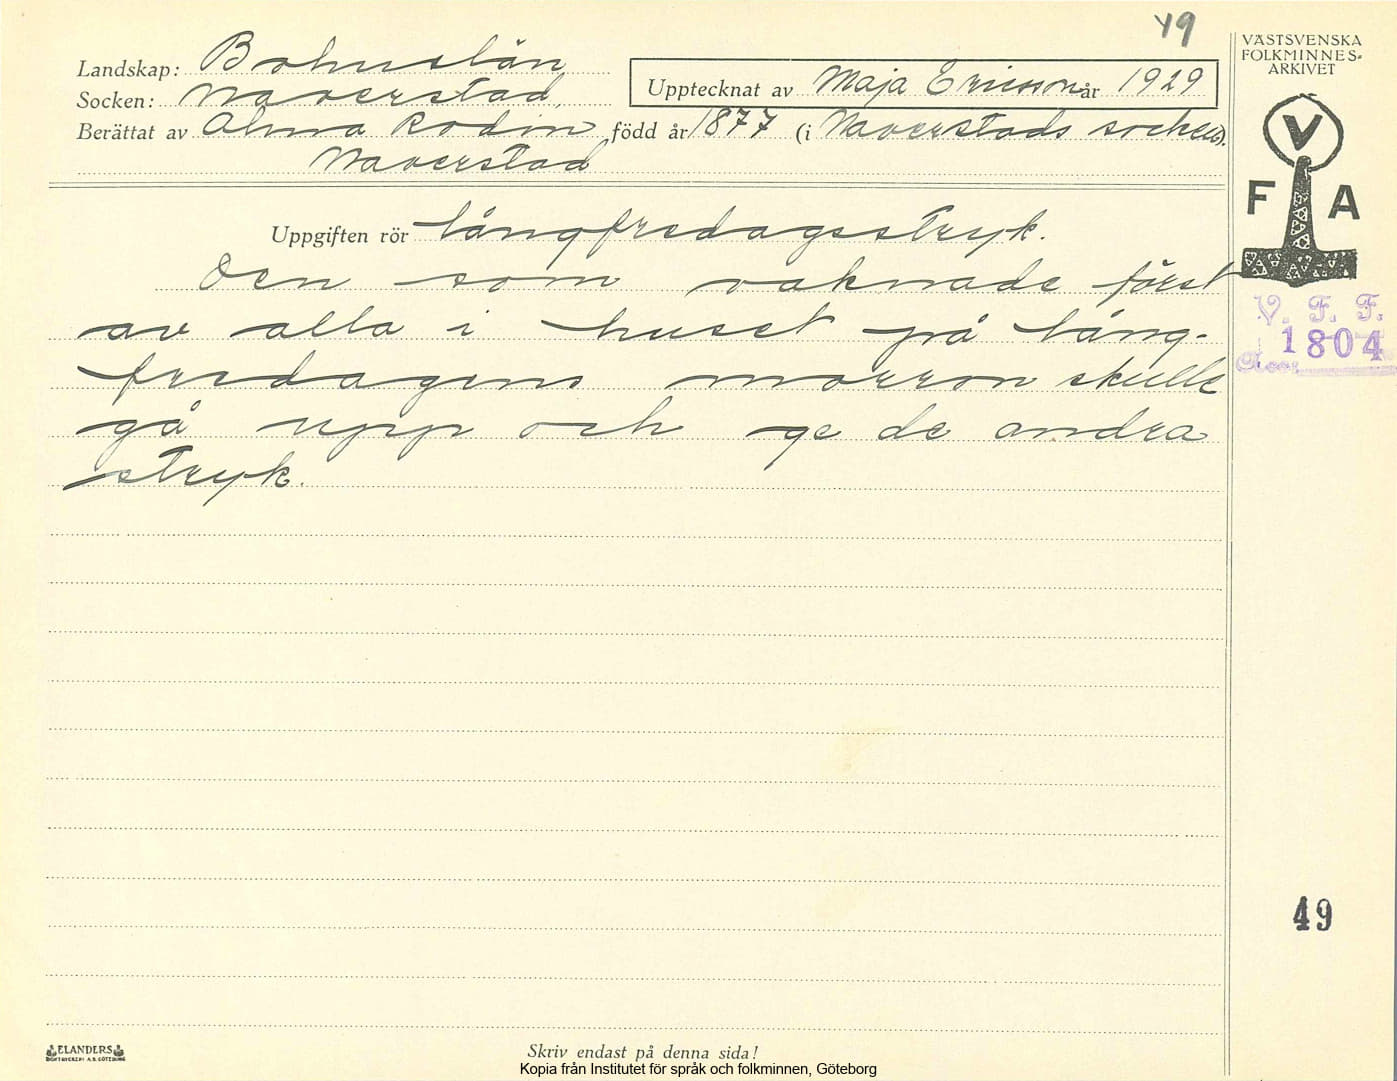 49
VÄSTSVENSKA
FOLKMINNES-
ARKIVET
Landskap: Bohuslän
Socken: Naverstad
Upptecknat av Maja Ericsson år 1929
Berättat av Alma Rodin född år 1877 (i Naverstads socken).
Naverstad
V
F A
Uppgiften rör långfredagsstryk.
Den som vaknade först
av alla i huset på lång-
fredagens morron skulle
gå upp och ge de andra
stryk.
V. F. F.
1804
49
ELANDERS
BOKTRYCKERI A.B. GÖTEBORG
Skriv endast på denna sida!
Kopia från Institutet för språk och folkminnen, Göteborg